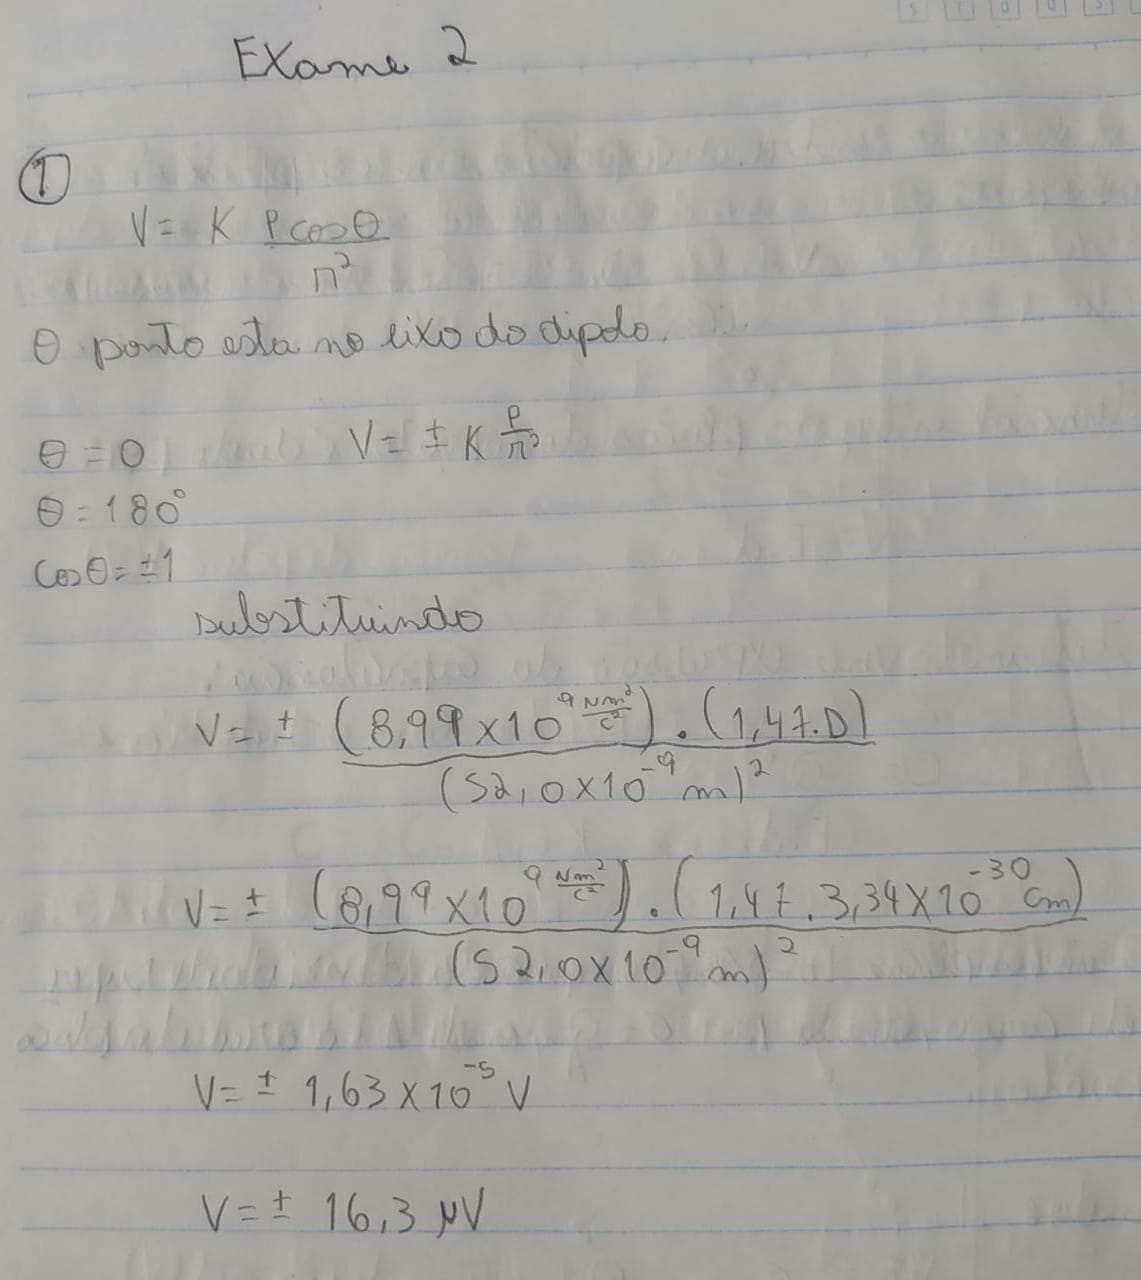 Exame 2
①
V = K P cosθ / r²
O ponto esta no eixo do dipolo.
θ = 0 V = ± K P / r²
θ = 180°
Cosθ = ±1
substituindo
V = ± (8,99 x 10⁹ Nm²/C²) . (1,47.D) / (52,0 x 10⁻⁹ m)²
V = ± (8,99 x 10⁹ Nm²/C²) . (1,47 . 3,34 x 10⁻³⁰ Cm) / (52,0 x 10⁻⁹ m)²
V = ± 1,63 x 10⁻⁵ V
V = ± 16,3 μV